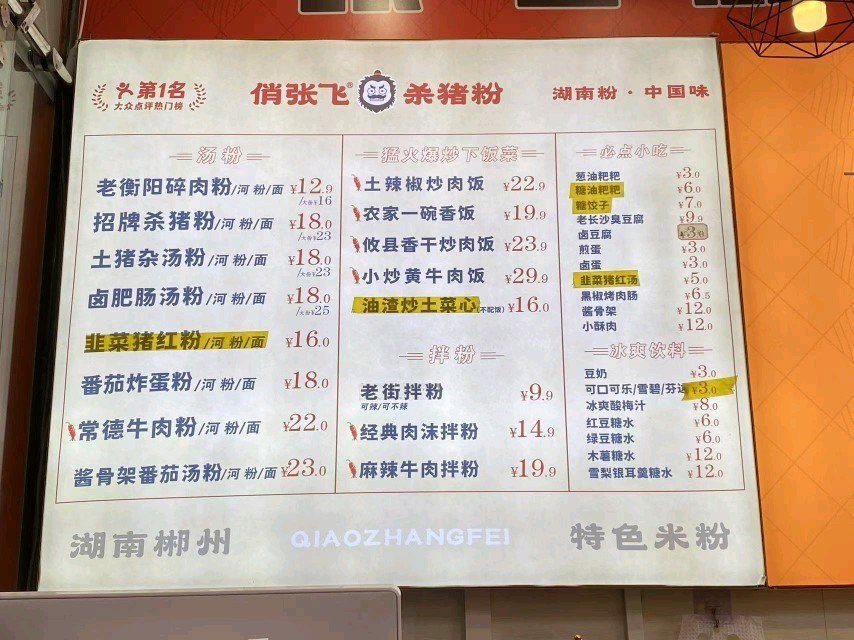 第1名
大众点评热门榜
俏张飞® 杀猪粉
湖南粉·中国味
汤粉
老衡阳碎肉粉/河粉/面 ¥12.9
/大份¥16
招牌杀猪粉/河粉/面 ¥18.0
/大份¥23
土猪杂汤粉/河粉/面 ¥18.0
/大份¥23
卤肥肠汤粉/河粉/面 ¥18.0
/大份¥25
韭菜猪红粉/河粉/面 ¥16.0
番茄炸蛋粉/河粉/面 ¥18.0
常德牛肉粉/河粉/面 ¥22.0
酱骨架番茄汤粉/河粉/面 ¥23.0
猛火爆炒下饭菜
土辣椒炒肉饭 ¥22.9
农家一碗香饭 ¥19.9
攸县香干炒肉饭 ¥23.9
小炒黄牛肉饭 ¥29.9
油渣炒土菜心(不配饭) ¥16.0
拌粉
老街拌粉 ¥9.9
可辣/可不辣
经典肉沫拌粉 ¥14.9
麻辣牛肉拌粉 ¥19.9
必点小吃
葱油粑粑 ¥3.0
糖油粑粑 ¥6.0
糖饺子 ¥7.0
老长沙臭豆腐 ¥9.9
卤豆腐 ¥3.0
煎蛋 ¥3.0
卤蛋 ¥3.0
韭菜猪红汤 ¥5.0
黑椒烤肉肠 ¥6.5
酱骨架 ¥12.0
小酥肉 ¥12.0
冰爽饮料
豆奶 ¥3.0
可口可乐/雪碧/芬达 ¥3.0
冰爽酸梅汁 ¥8.0
红豆糖水 ¥6.0
绿豆糖水 ¥6.0
木薯糖水 ¥12.0
雪梨银耳羹糖水 ¥12.0
湖南郴州
QIAOZHANGFEI
特色米粉